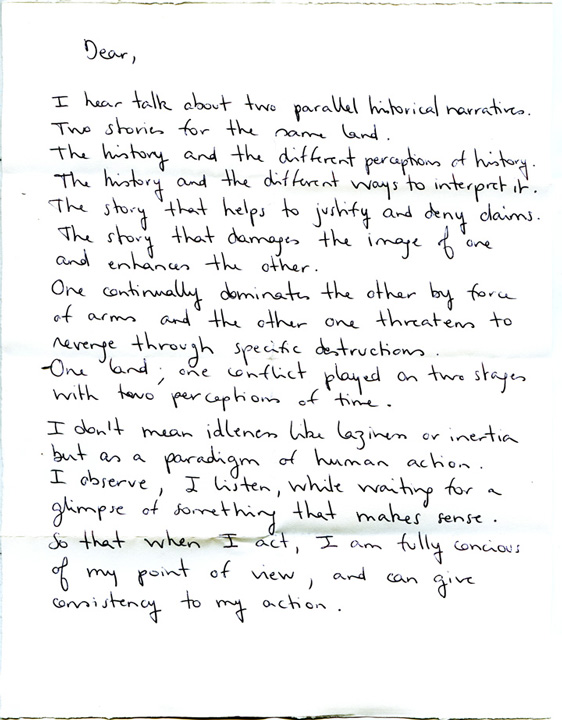 Dear,
I hear talk about two parallel historical narratives.
Two stories for the same land.
The history and the different perceptions of history.
The history and the different ways to interpret it.
The story that helps to justify and deny claims.
The story that damages the image of one
and enhances the other.
One continually dominates the other by force
of arms and the other one threatens to
revenge through specific destructions.
One land; one conflict played on two stages
with two perceptions of time.
I don't mean idleness like laziness or inertia
but as a paradigm of human action.
I observe, I listen, while waiting for a
glimpse of something that makes sense.
So that when I act, I am fully concious
of my point of view, and can give
consistency to my action.